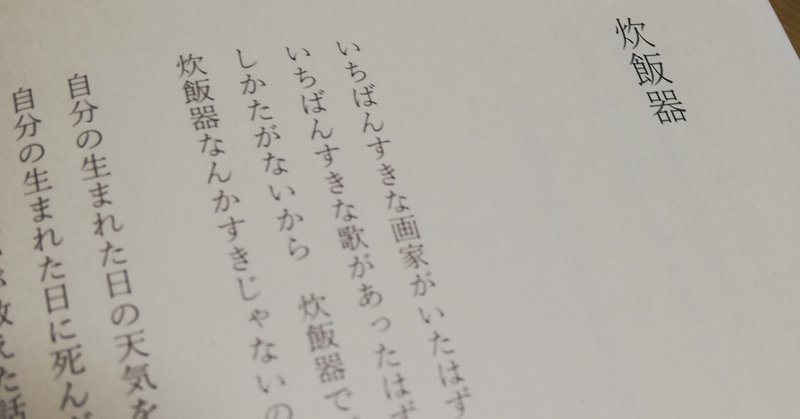 炊飯器
いちばんすきな画家がいたはず
いちばんすきな歌があったはず
しかたがないから 炊飯器で
炊飯器なんかすきじゃないの
自分の生まれた日の天気を
自分の生まれた日に死んだ
教えた話